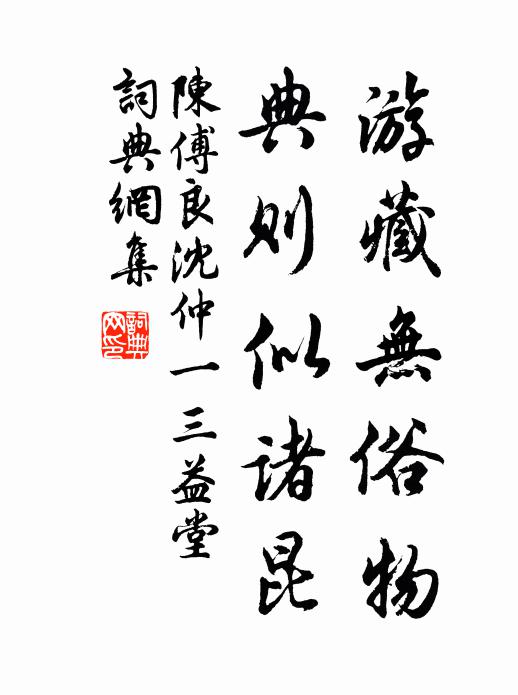 游藏無俗物
典则似诸昆
陳傅良沈仲一三益堂
詞典網集
詞典网印